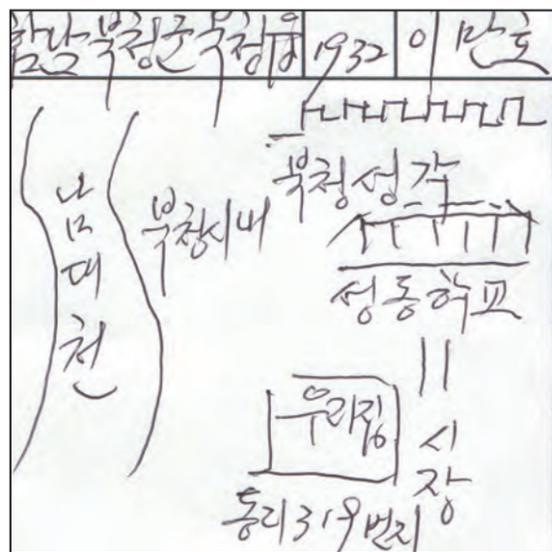 함남북청군북청읍 1932 이만호
북청성곽
남대천
북청시내
성동학교
우리집
시장
동리319번지